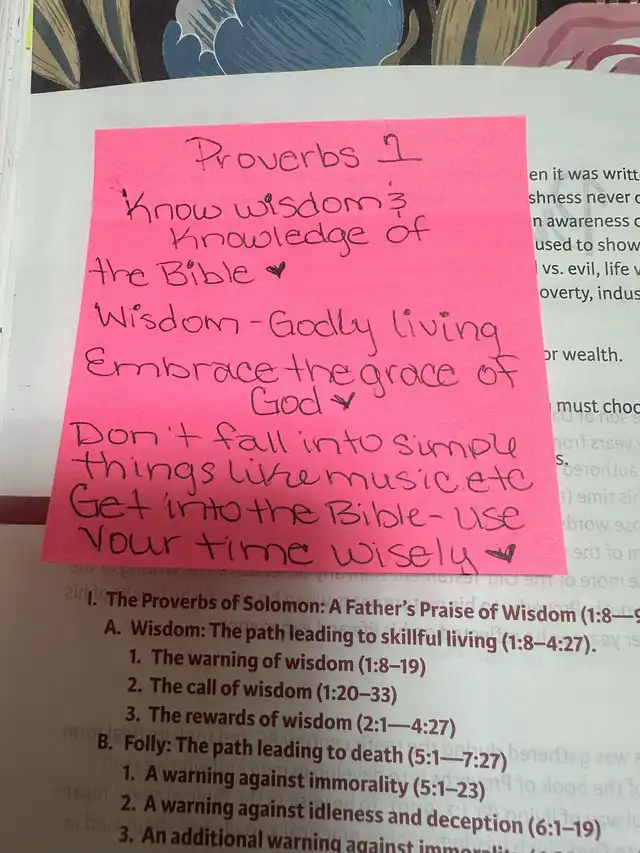 Proverbs 1
Know wisdom &
Knowledge of
the Bible ♥
Wisdom - Godly living
Embrace the grace of
God ♥
Don't fall into simple
things like music etc
Get into the Bible - use
Your time wisely ♥
en it was writt
shness never
n awareness
used to show
vs. evil, life v
overty, indus
or wealth.
must choo
s.
I. The Proverbs of Solomon: A Father's Praise of Wisdom (1:8—9
A. Wisdom: The path leading to skillful living (1:8–4:27).
1. The warning of wisdom (1:8–19)
2. The call of wisdom (1:20–33)
3. The rewards of wisdom (2:1—4:27)
B. Folly: The path leading to death (5:1—7:27)
1. A warning against immorality (5:1–23)
2. A warning against idleness and deception (6:1–19)
3. An additional warning against immorali